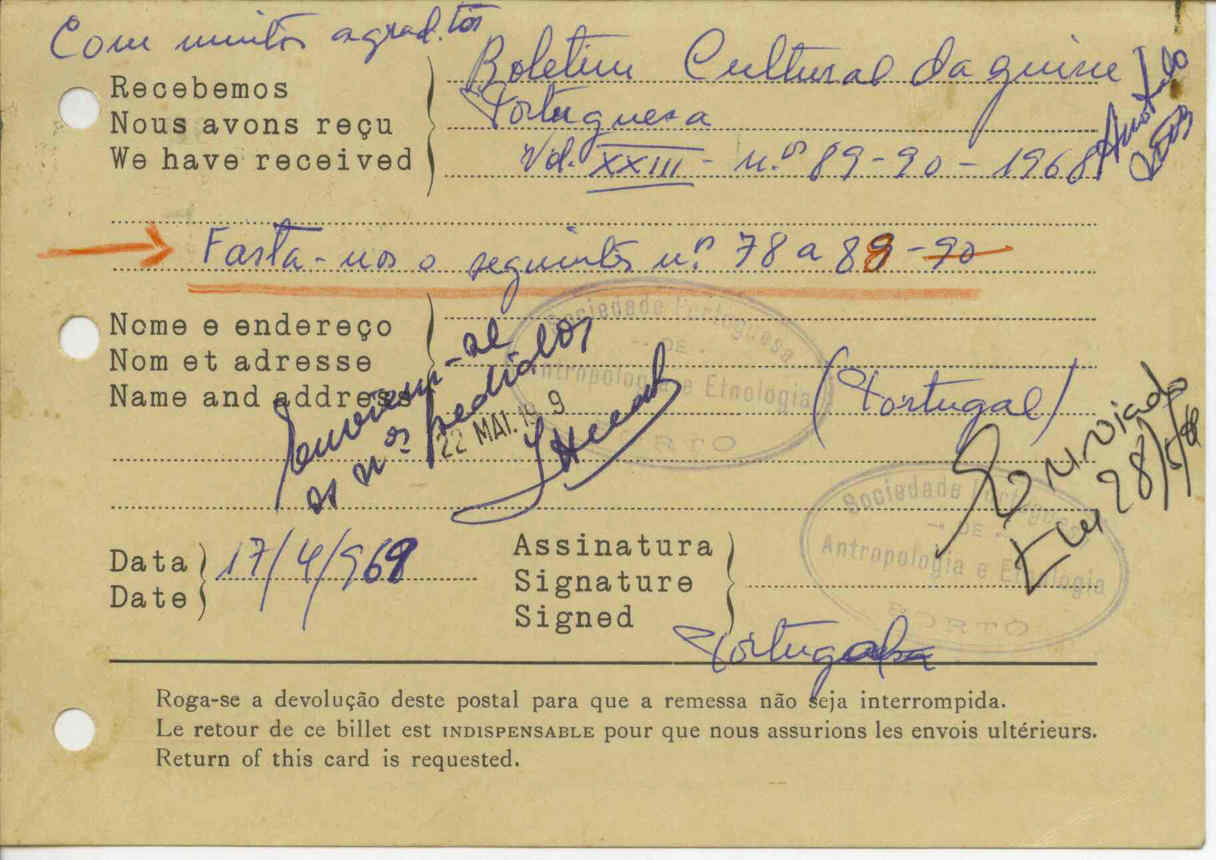 Com muitos agrad.tos
Recebemos
Nous avons reçu
We have received
Boletim Cultural da guine
Portuguesa
Vol. XXIII - n.os 89-90 - 1968
Fasta-nos o seguintes n.os 78 a 89-90
Nome e endereço
Nom et adresse
Name and address
Sociedade Portuguesa
DE
Antropologia e Etnologia
PORTO
(Portugal)
Enviem-se
os n.os pedidos
22 MAI. 19 9
Enviado
Em 28/5/69
Sociedade Portuguesa
DE
Antropologia e Etnologia
PORTO
Data
Date
17/4/969
Assinatura
Signature
Signed
Portugal
Roga-se a devolução deste postal para que a remessa não seja interrompida.
Le retour de ce billet est INDISPENSABLE pour que nous assurions les envois ultérieurs.
Return of this card is requested.